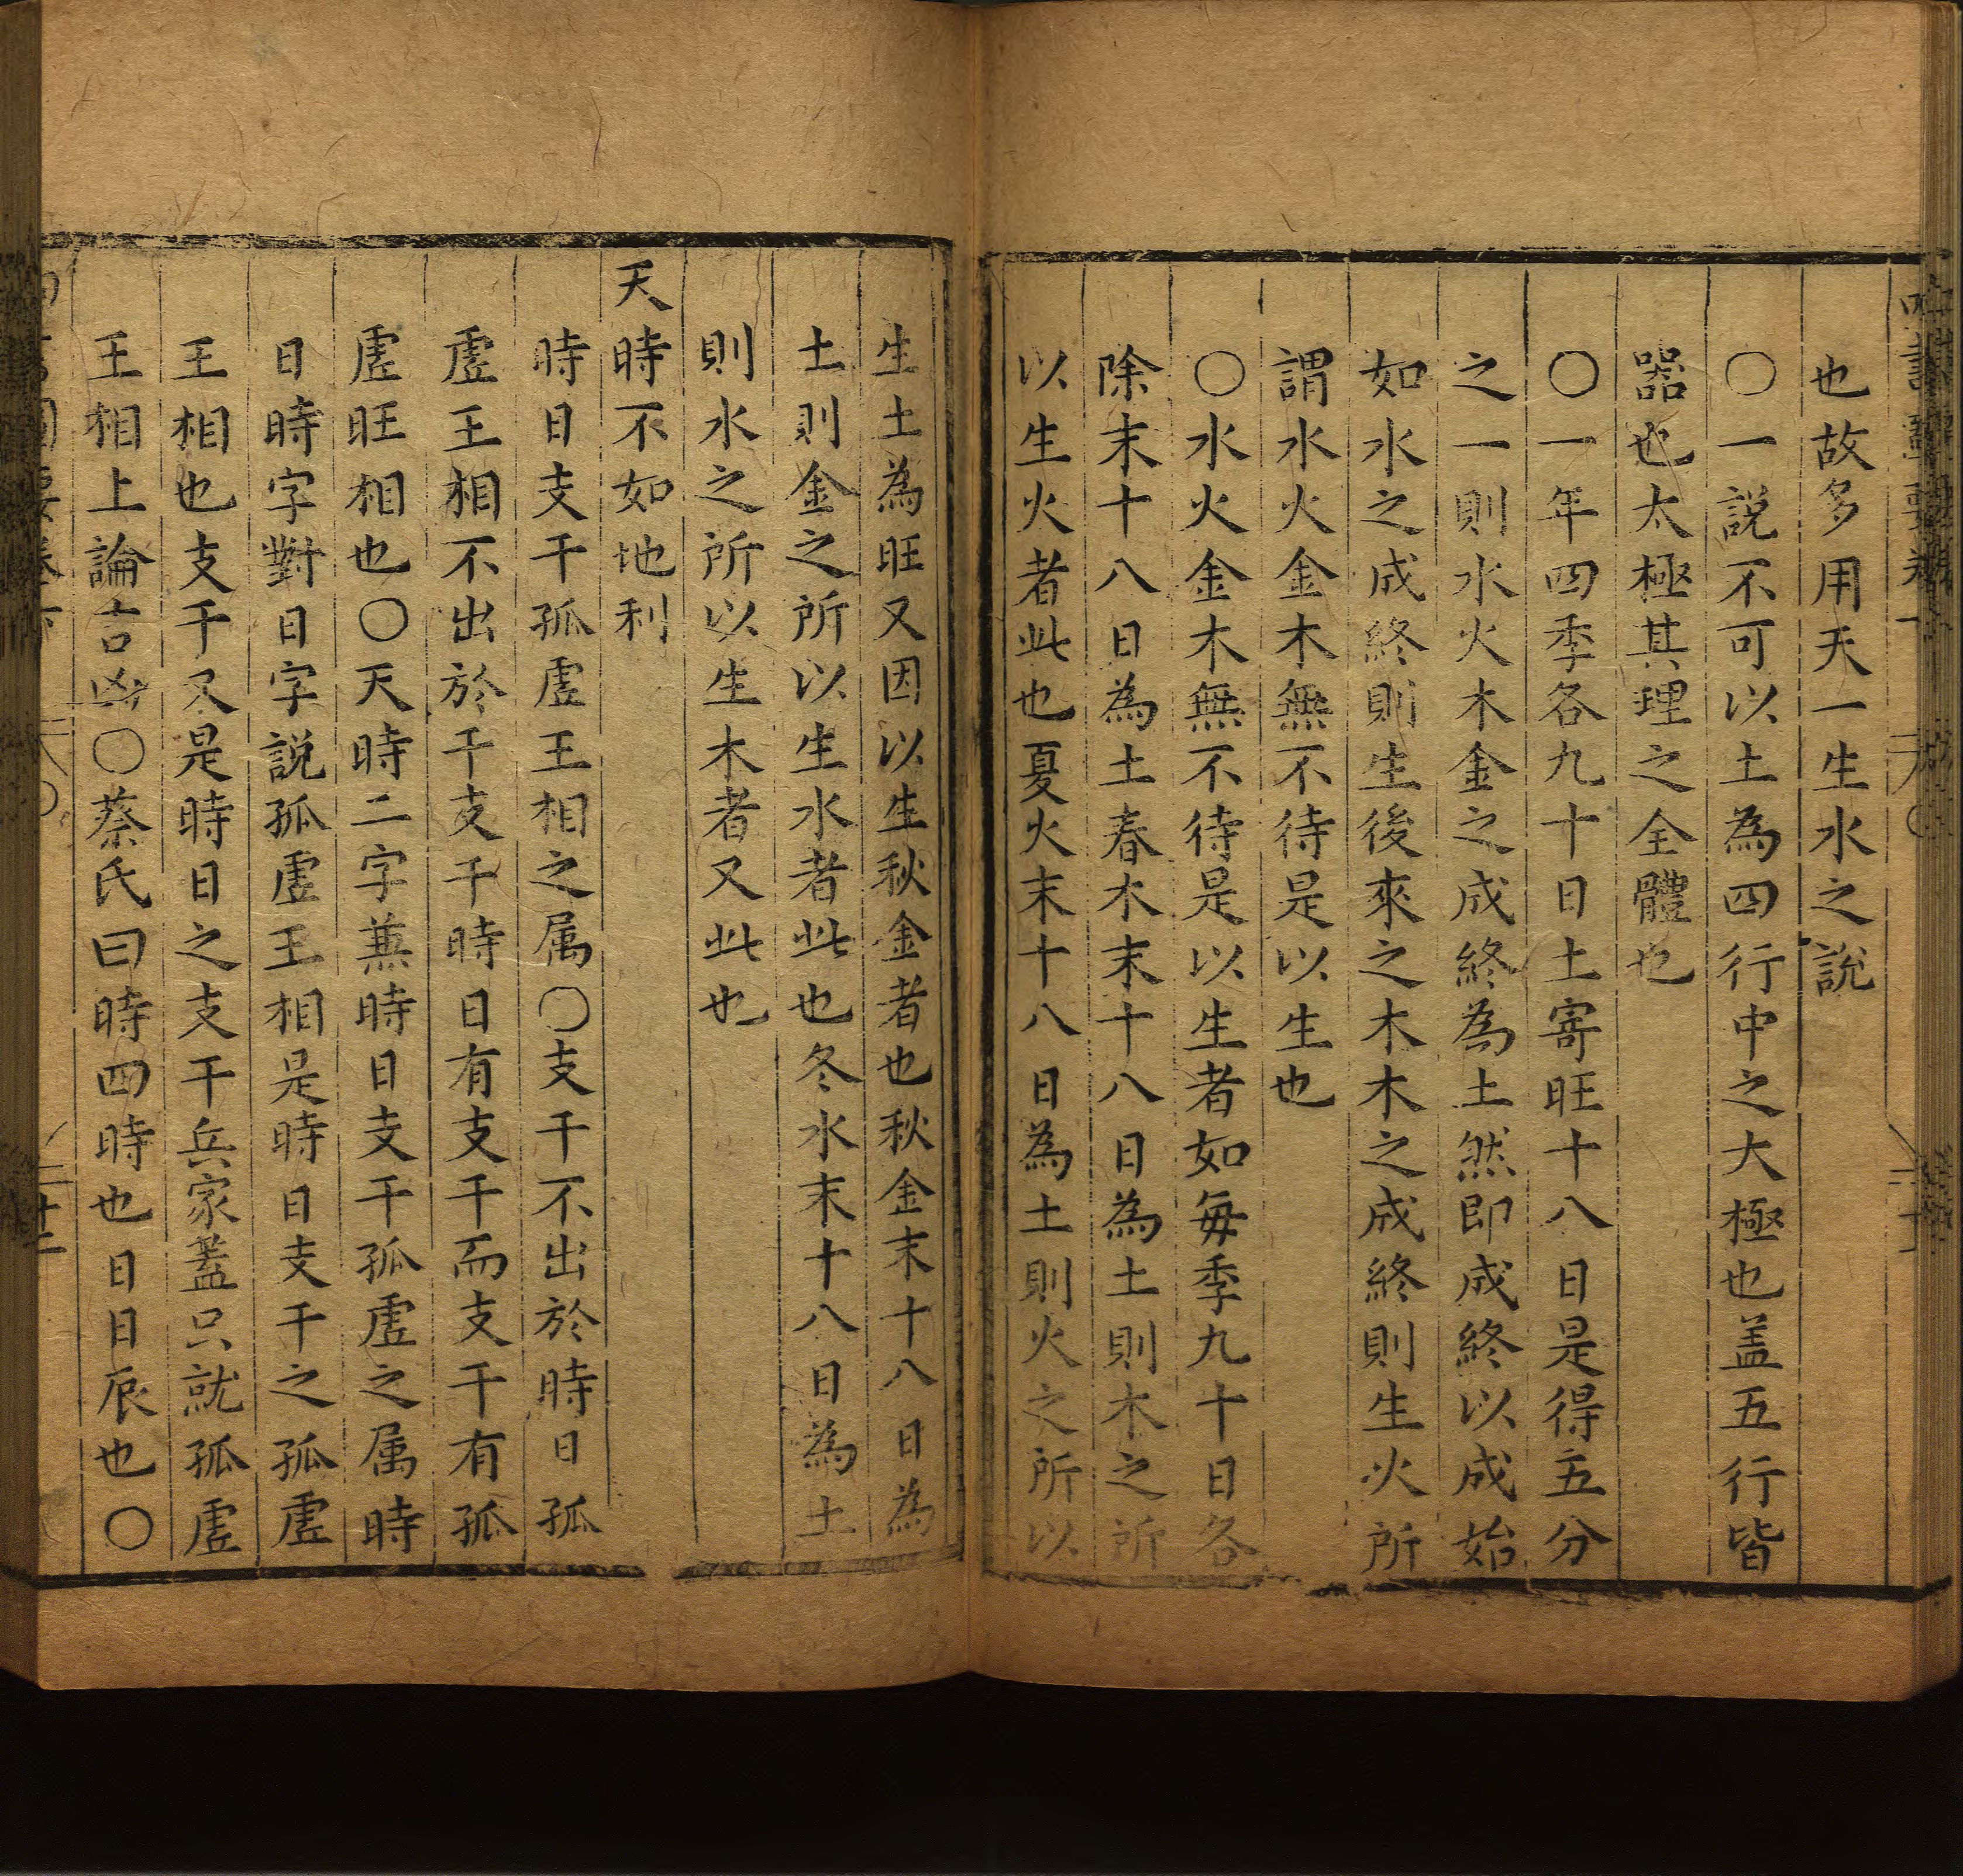 也故多用天一生水之說
○一說不可以土為四行中之大極也盖五行皆
器也太極其理之全體也
○一年四季各九十日土寄旺十八日是得五分
之一則水火木金之成終為土然即成終以成始
如水之成終則生後來之木木之成終則生火所
謂水火金木無不待是以生也
○水火金木無不待是以生者如每季九十日各
除末十八日為土春木末十八日為土則木之所
以生火者此也夏火末十八日為土則火之所以
生土為旺又因以生秋金者也秋金末十八日為
土則金之所以生水者此也冬水末十八日為土
則水之所以生木者又此也
天時不如地利
時日支干孤虛王相之属○支干不出於時日孤
虛王相不出於干支干時日有支干而支干有孤
虛旺相也○天時二字兼時日支干孤虛之属時
日時字對日字說孤虛王相是時日支干之孤虛
王相也支干又是時日之支干兵家蓋只就孤虛
王相上論吉凶○蔡氏曰時四時也日日辰也○